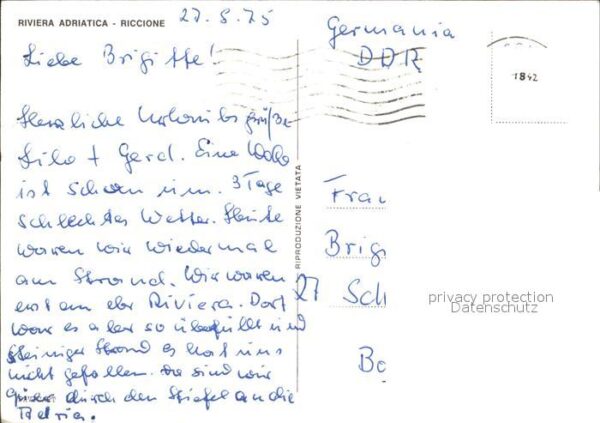 RIVIERA ADRIATICA - RICCIONE
27.8.75
Liebe Brigitte!
Herzliche Urlaubsgrüße
Lilo + Gerd. Eine Woche
ist schon um. 3 Tage
schlechtes Wetter. Heute
waren wir wiedermal
am Strand. Wir waren
erst an der Riviera. Dort
war es aber so überfüllt und
steiniger Strand es hat uns
nicht gefallen. Da sind wir
quer durch den Stiefel an die
Adria.
RIPRODUZIONE VIETATA
Germania
DDR
1842
Frau
Brig
27 Sch
Be
privacy protection
Datenschutz